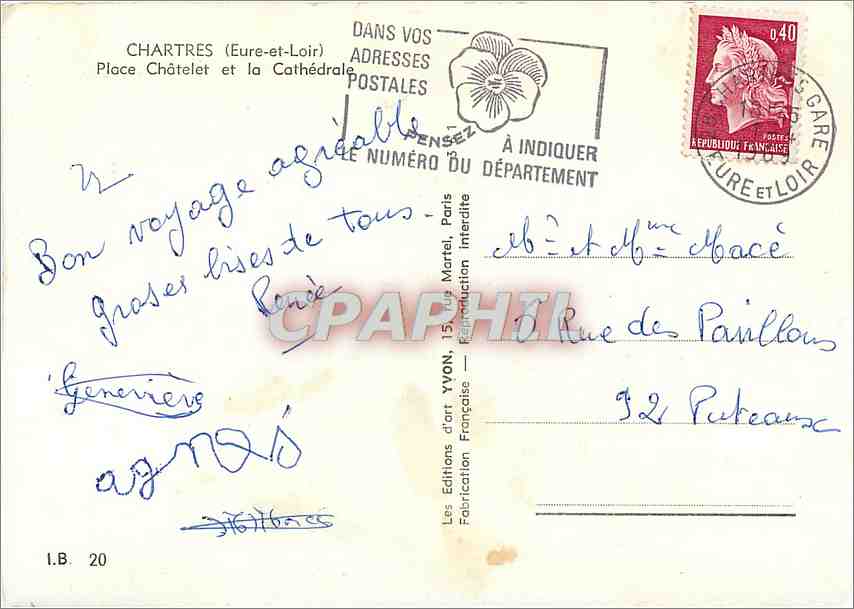 CHARTRES (Eure-et-Loir)
Place Châtelet et la Cathédrale
DANS VOS
ADRESSES
POSTALES
PENSEZ
À INDIQUER
LE NUMÉRO DU DÉPARTEMENT
0,40
POSTES
REPUBLIQUE FRANÇAISE
GARE
EURE ET LOIR
Bon voyage agréable
groses bises de tous -
Renée
Geneviève
agnès
I.B. 20
Les Editions d'art YVON, 15, rue Martel, Paris
Fabrication Française — Reproduction Interdite
Mr et Mme Macé
6 Rue des Pavillons
92 Puteaux
CPAPHIL